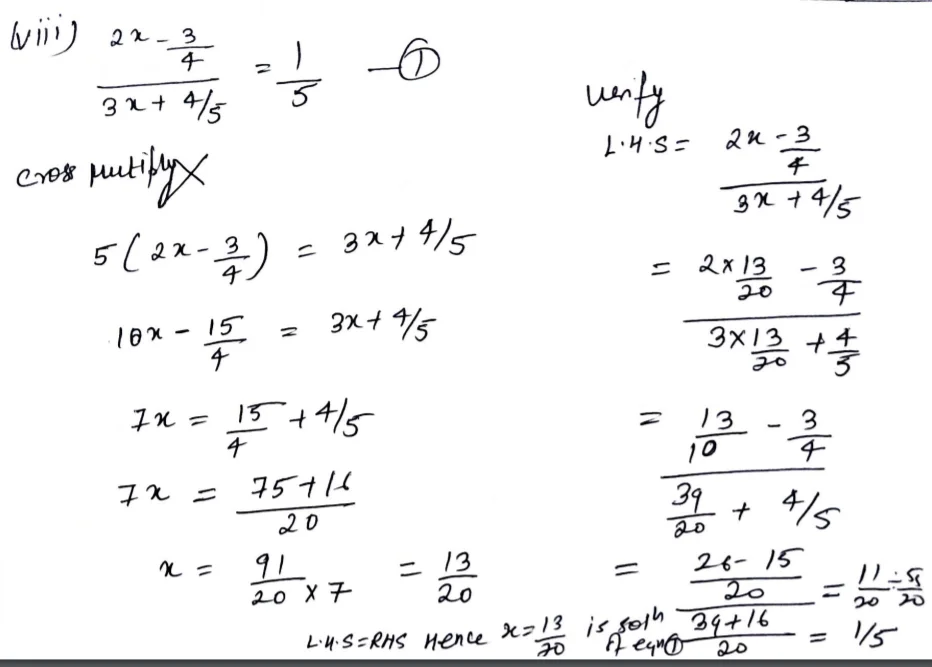 (viii) (2x - 3/4)/(3x + 4/5) = 1/5 —①
cross multiply
5(2x - 3/4) = 3x + 4/5
10x - 15/4 = 3x + 4/5
7x = 15/4 + 4/5
7x = (75+16)/20
x = 91/(20 × 7) = 13/20
verify
L.H.S = (2x - 3/4)/(3x + 4/5)
= (2×13/20 - 3/4)/(3×13/20 + 4/5)
= (13/10 - 3/4)/(39/20 + 4/5)
= ((26-15)/20)/((39+16)/20) = 11/20 ÷ 55/20
= 1/5
L.H.S=RHS Hence x=13/20 is soln of eqn①